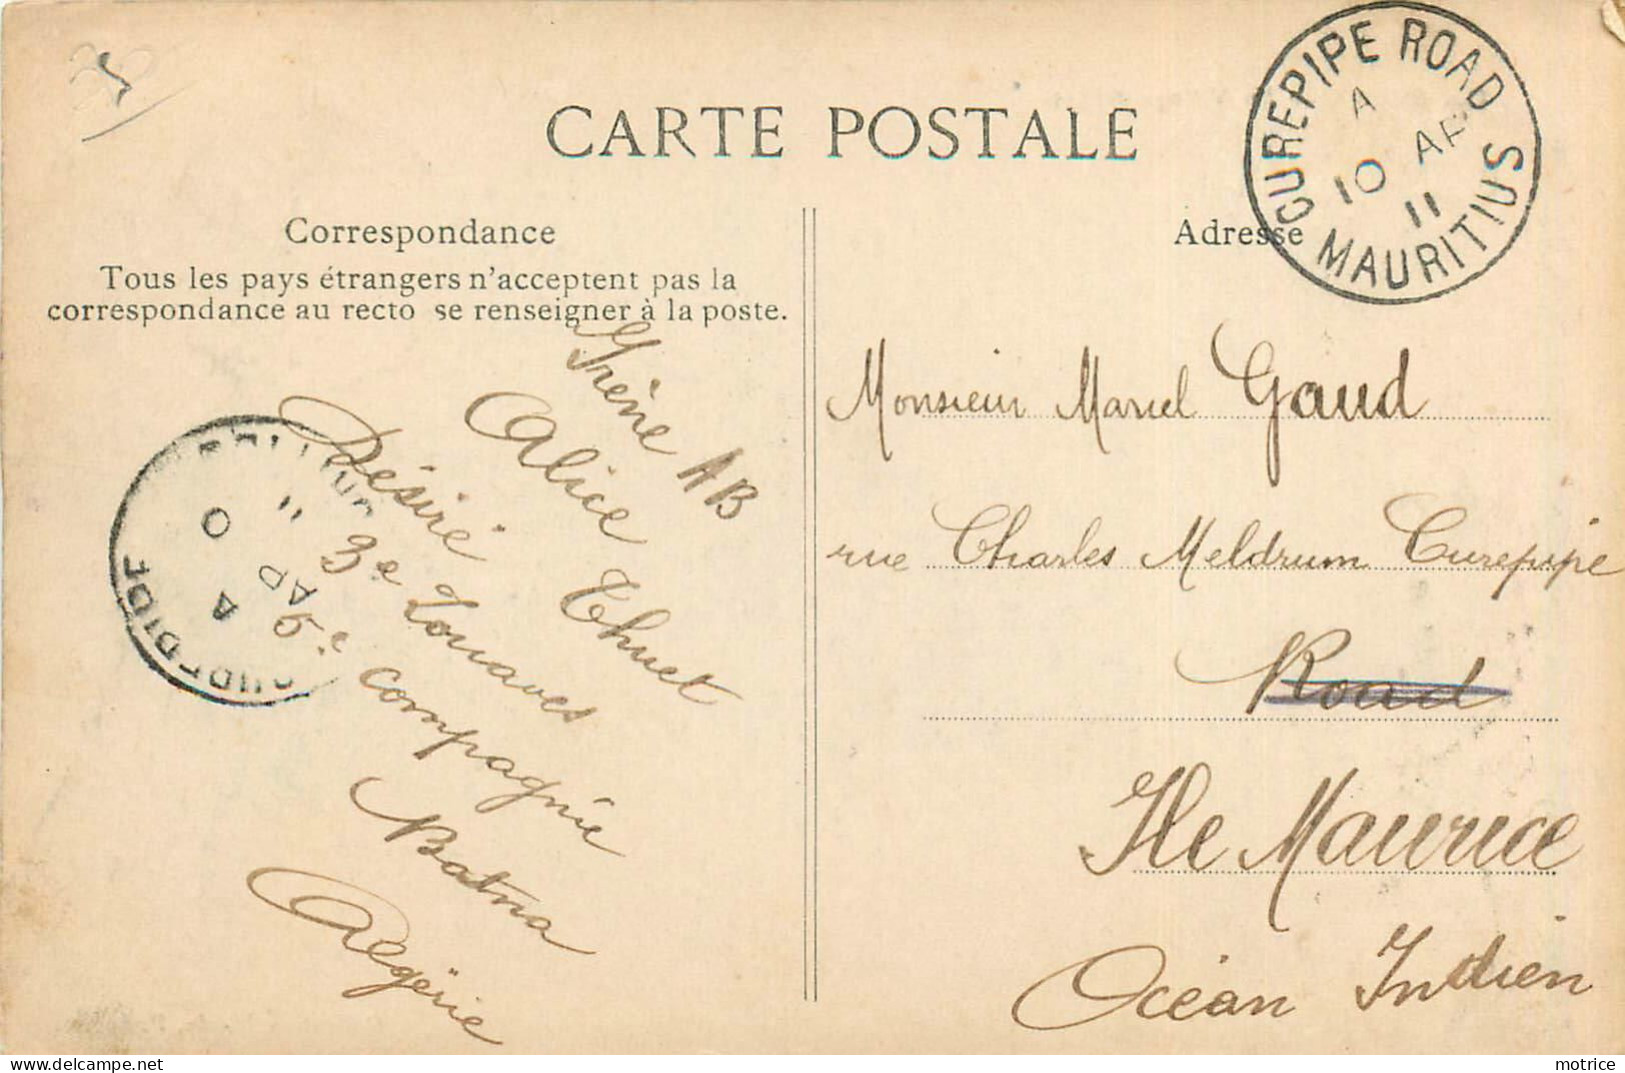 35
CARTE POSTALE
CUREPIPE ROAD
A
10 AP
11
MAURITIUS
Correspondance
Tous les pays étrangers n'acceptent pas la
correspondance au recto se renseigner à la poste.
Adresse
Irène AB
Alice Thuet
Désiré
3e Zouaves
6e compagnie
Batna
Algérie
11
AP
A
Monsieur Marcel Gaud
rue Charles Meldrum Curepipe
Road
Ile Maurice
Océan Indien
motrice